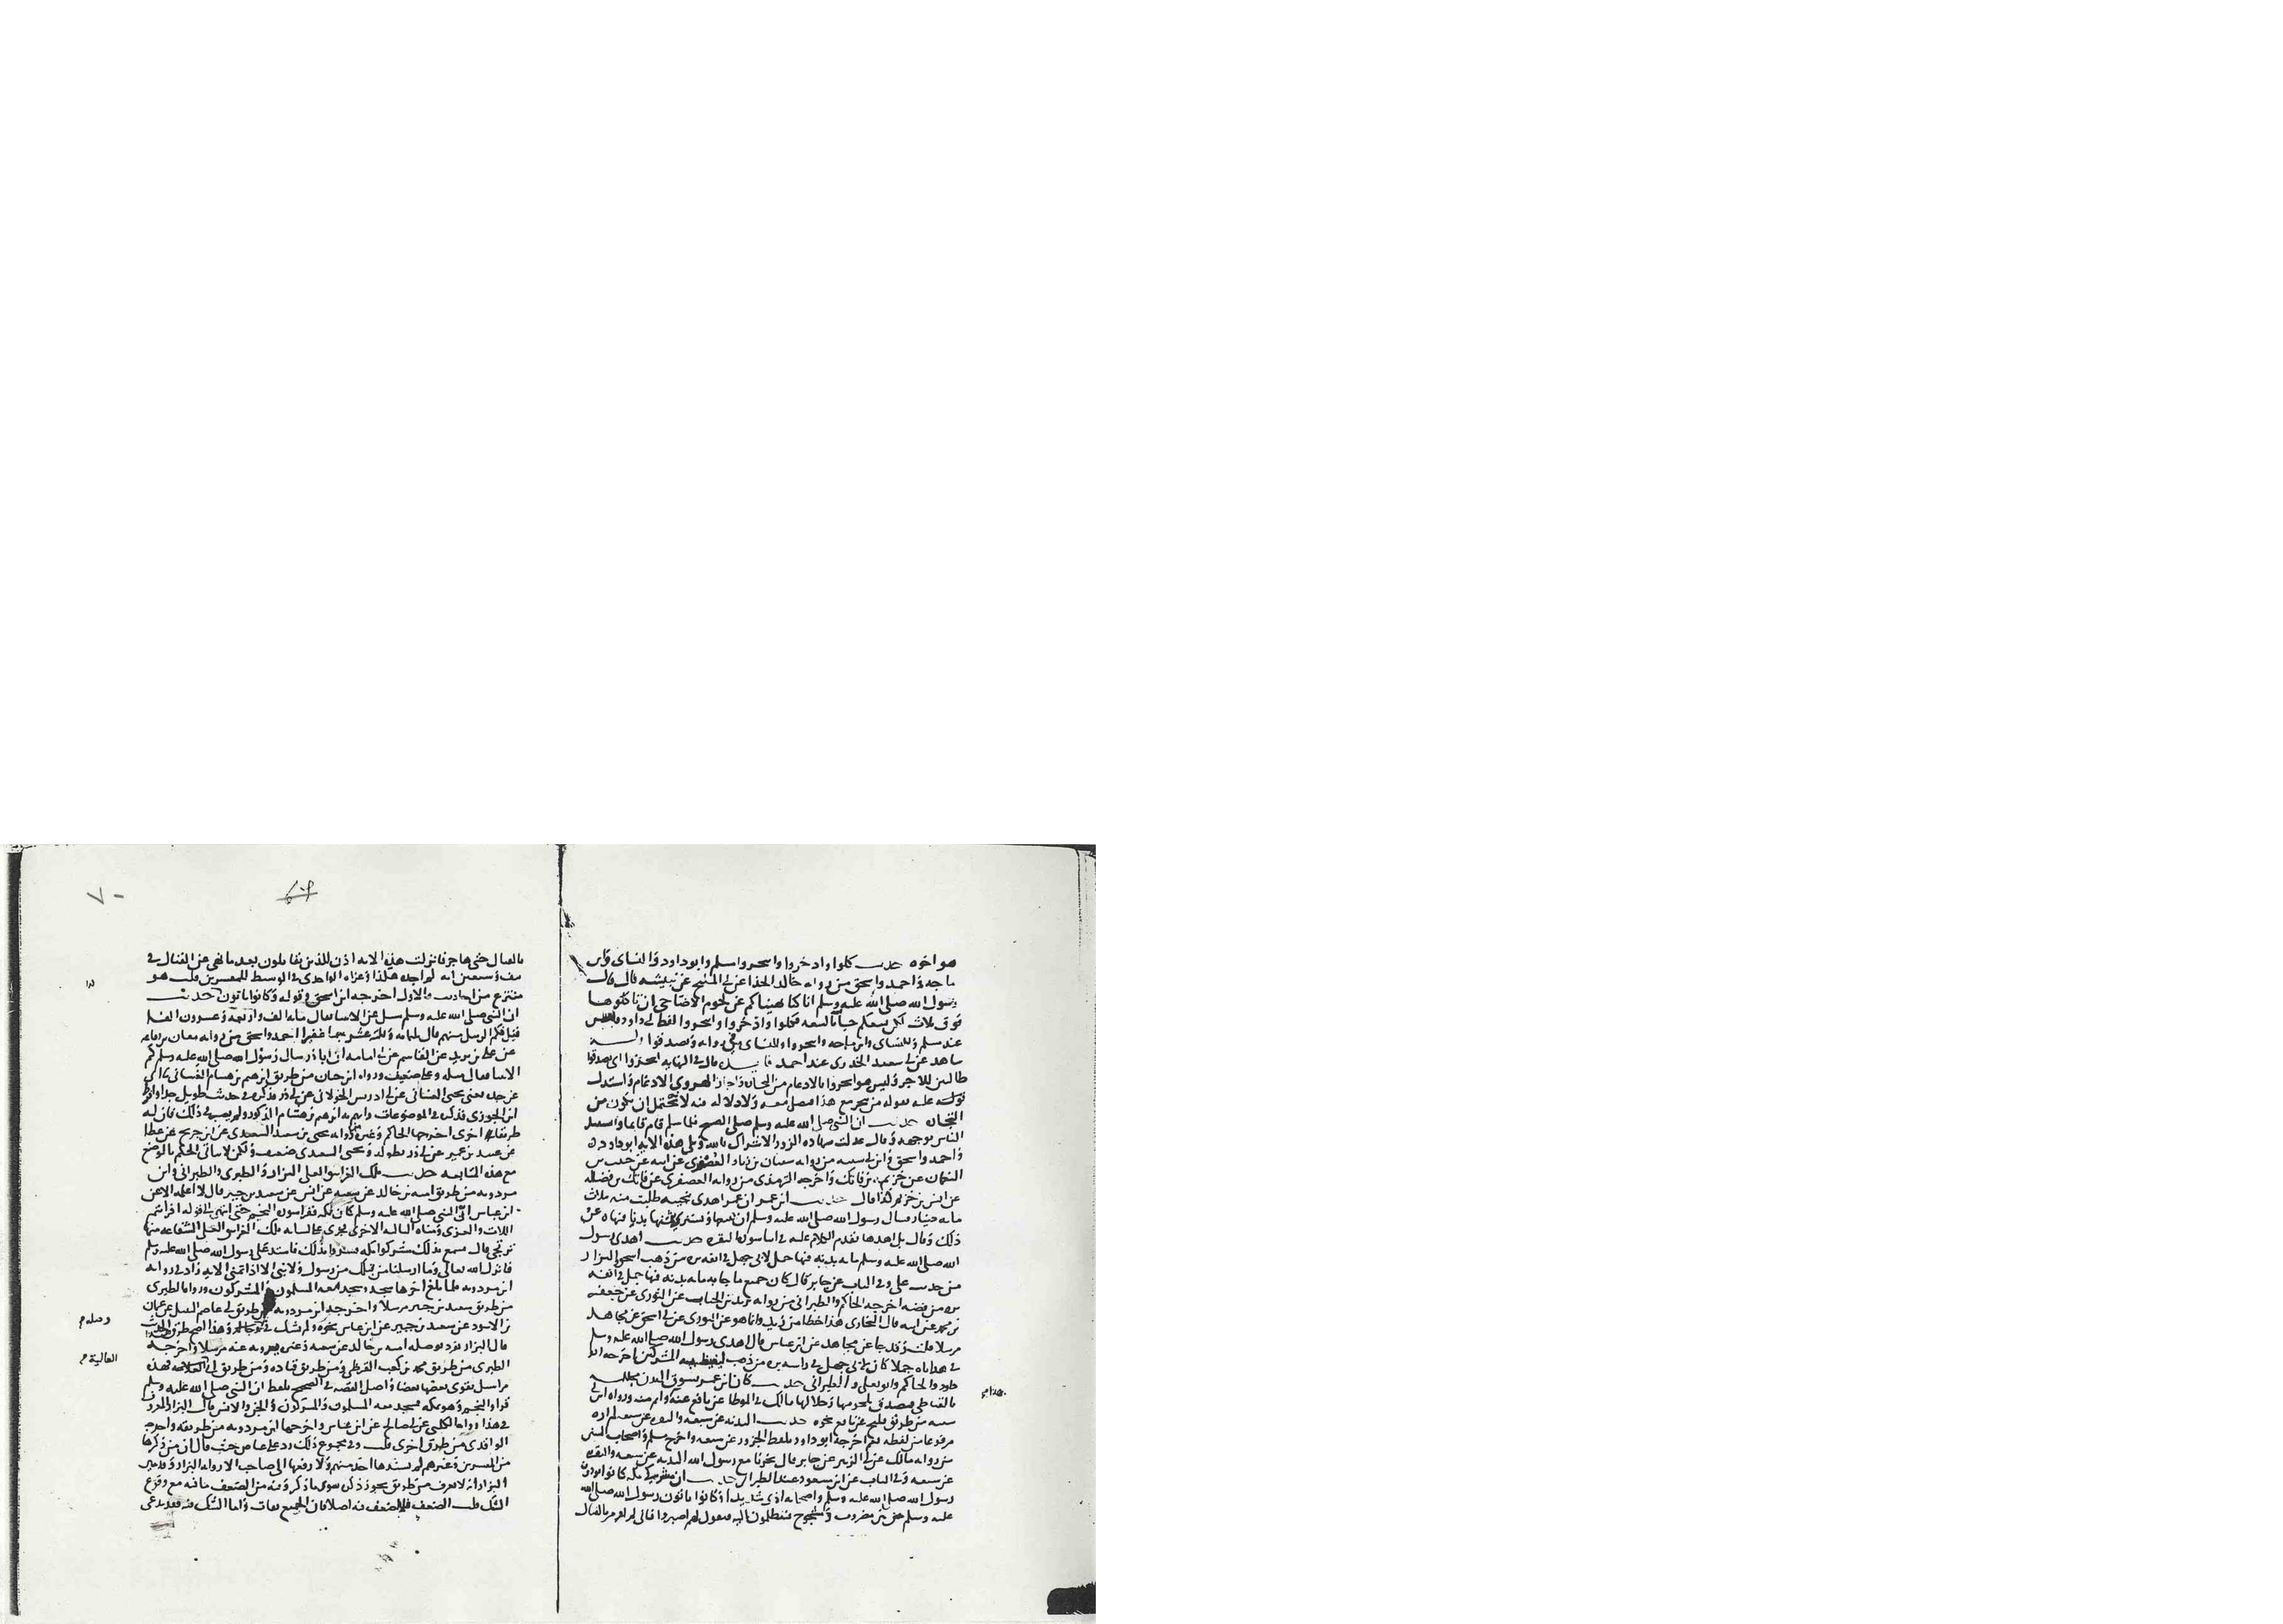 هو اخوه حديث كلوا وادخروا واتجروا مسلم وابو داود والنساى وابن
ماجه واحمد واسحق من رواية خالد الحذا عن ابى المليح عن نبيشه قال قال
رسول الله صلى الله عليه وسلم انا كنا نهيناكم عن لحوم الاضاحى ان تاكلوها
فوق ثلاث لكى يسعكم جاء الله بالسعه فكلوا وادخروا واتجروا لفظ ابى داود
عند مسلم وللنساى وابن ماجه واتجروا وللنساى فى رواية وتصدقوا وله
شاهد عن ابى سعيد الخدرى عند احمد قال فى النهايه اتجروا اى تصدقوا
طالبين للاجر وليس هو اتجروا بالادغام من التجاره واجاز الهروى الادغام واستدل
عليه بقوله من يتجر مع هذا فيصلى معه ولا دلالة فيه لانه يحتمل ان يكون من
التجاره حديث ان النبى صلى الله عليه وسلم صلى الصبح فلما سلم قام قايما واستقبل
الناس بوجهه وقال عدلت شهاده الزور الاشراك بالله وتلى هذه الايه ابو داود
واحمد واسحق وابن ابى شيبه من رواية سفيان بن زياد العصفرى عن ابيه عن حبيب بن
النعمان عن خريم بن فاتك واخرجه الترمذى من رواية العصفرى عن فاتك بن فضاله
عن ايمن بن خريم كذا قال حديث ابن عمر ان عمر اهدى نجيبه طلبت منه بثلاث
مايه دينار فسال رسول الله صلى الله عليه وسلم ان يبيعها ويشترى بثمنها بدنا فنهاه عن
ذلك وقال بل اهدها تقدم الكلام عليه فى اساسورة البقره حديث اهدى رسول
الله صلى الله عليه وسلم مايه بدنه فيها جمل لابى جهل فى انفه بره من ذهب اسحق والبزار
من حديث على وفى الباب عن جابر قال كان جميع ما جا به مايه بدنه فيها جمل فى انفه
بره من فضه اخرجه الحاكم والطبرانى من رواية زيد بن الحباب عن الثورى عن جعفر
بن محمد عن ابيه قال البخارى هذا خطا من زيد وانما هو عن الثورى عن ابى اسحق عن مجاهد
مرسلا قلت وقد جا عن مجاهد عن ابن عباس قال اهدى رسول الله صلى الله عليه وسلم
فى هداياه جملا كان لابى جهل فى راسه بره من ذهب ليغيظ به المشركين اخرجه ابو
داود والحاكم وابو يعلى والطبرانى حديث كان ابن عمر يسوق البدن مجلله
بالقباطى فيتصدق بلحومها وجلالها مالك فى الموطا عن نافع عنه واتم منه ورواه ابن ابى
شيبه من طريق فليح عن نافع نحوه حديث البدنه عن سبعه والبقره عن سبعه لم اره
مرفوعا من لفظه نعم اخرجه ابو داود بلفظ الجزور عن سبعه واخرج مسلم واصحاب السنن
من رواية مالك عن ابى الزبير عن جابر قال نحرنا مع رسول الله البدنه عن سبعه والبقره
عن سبعه وفى الباب عن ابن مسعود عند الطبرانى حديث ان مشركى مكه كانوا يوذون
رسول الله صلى الله عليه وسلم واصحابه اذى شديدا وكانوا ياتون رسول الله صلى الله
عليه وسلم من بين مضروب ومشجوج يتظلمون اليه فيقول لهم اصبروا فانى لم اومر بالقتال
هذا م
٧٠
بالقتال حتى هاجر فانزلت هذه الايه اذن للذين يقاتلون بعد ما نهى عن القتال فى
نيف وسبعين ايه لم اجده هكذا وعزاه الواحدى فى الوسيط للمفسرين قلت هو
منتزع من احاديث والاول اخرجه ابن اسحق وقوله وكانوا ياتون حديث
ان النبى صلى الله عليه وسلم سيل عن الانبيا فقال مايه الف واربعه وعشرون الفا
قيل فكم الرسل منهم قال ثلثمايه وثلثه عشر جما غفيرا احمد واسحق من رواية معان بن رفاعه
عن على بن يزيد عن القاسم عن ابى امامه ان ابا ذر سال رسول الله صلى الله عليه وسلم كم
الانبيا فقال مثله وعلى ضعيف ورواه ابن حبان من طريق ابرهيم بن هشام الغسانى
عن جده يعنى يحيى الغسانى عن ابى ادريس الخولانى عن ابى ذر فذكره فى حديث طويل جدا وافرط
ابن الجوزى فذكره فى الموضوعات واتهم به ابرهيم بن هشام المذكور ولم يصب فى ذلك فان له
طريقا اخرى اخرجها الحاكم وغيره من رواية يحيى بن سعيد السعيدى عن ابن جريج عن عطا
عن عبيد بن عمير عن ابى ذر بطوله ويحيى السعدى ضعيف ولكن لا ياتى الحكم بالوضع
مع هذه المتابعه حديث تلك الغرانيق العلى البزار والطبرى والطبرانى وابن
مردويه من طريق اميه بن خالد عن شعبه عن ابى بشر عن سعيد بن جبير قال لا اعلمه الا عن
ابن عباس ان النبى صلى الله عليه وسلم كان بمكه فقرا سورة النجم حتى انتهى الى قوله افرايتم
اللات والعزى ومناه الثالثه الاخرى فجرى على لسانه تلك الغرانيق العلى الشفاعه منها
ترتجى قال فسمع بذلك مشركوا مكه فسروا بذلك فاشتد على رسول الله صلى الله عليه وسلم
فانزل الله تعالى وما ارسلنا من قبلك من رسول ولا نبى الا اذا تمنى الايه زاد فى رواية
ابن مردويه فلما بلغ اخرها سجد وسجد معه المسلمون والمشركون ورواه الطبرى
من طريق سعيد بن جبير مرسلا واخرجه ابن مردويه من طريق ابى عاصم النبيل عن عثمان
بن الاسود عن سعيد بن جبير عن ابن عباس نحوه ولم يشك فى وصله وهذا اصح طرق الحديث
قال البزار تفرد بوصله اميه بن خالد عن شعبه وغيره يرويه عنه مرسلا واخرجه
الطبرى من طريق محمد بن كعب القرظى ومن طريق قتاده ومن طريق ابى العاليه فهذه
مراسيل يقوى بعضها بعضا واصل القصه فى الصحيح بلفظ ان النبى صلى الله عليه وسلم
قرا والنجم وهو بمكه فسجد معه المسلمون والمشركون والجن والانس قال البزار المعروف
فى هذا رواية الكلبى عن ابى صالح عن ابن عباس واخرجها ابن مردويه من طريقه واخرجه
الواقدى من طريق اخرى قلت وفى مجموع ذلك رد على عياض حيث قال ان من ذكرها
من المفسرين وغيرهم لم يسندها احد منهم ولا رفعها الى صاحب الا رواية البزار وقد بين
البزار انه لا يعرف من طريق يجوز ذكره سوى ما ذكره وفيه من الضعف ما فيه مع وقوع
الشك قلت اما الضعف فلا ضعف فيه اصلا فان الجميع ثقات واما الشك فيه فقد يدعى
وصله م
العالية م